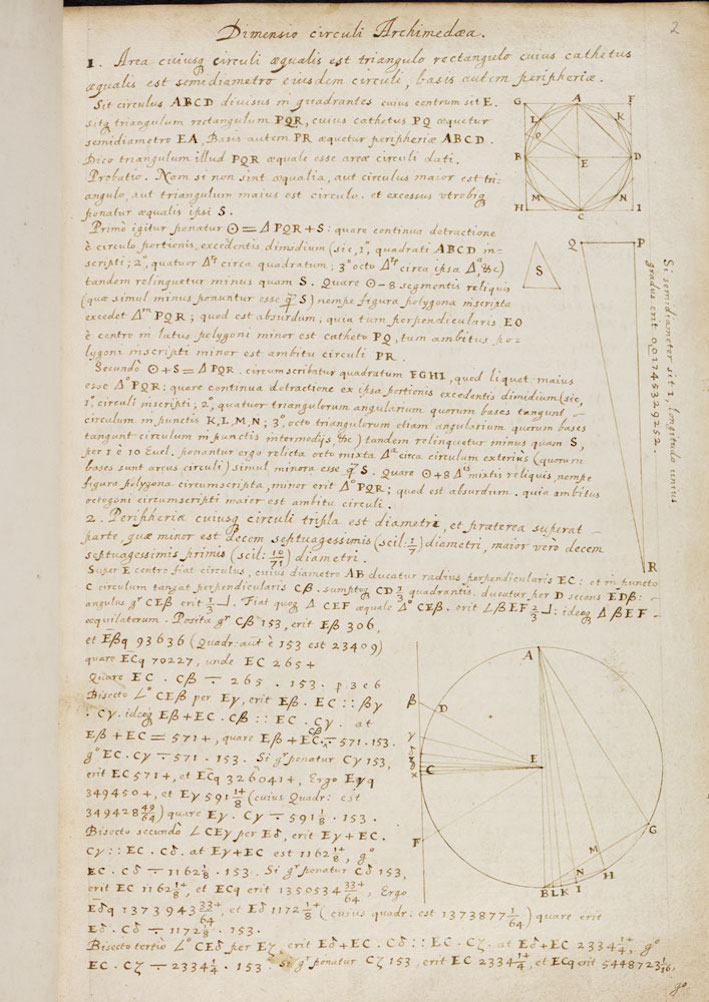 Dimensio circuli Archimedæa.
2
1. Area cuiusq circuli æqualis est triangulo rectangulo cuius cathetus
æqualis est semidiametro eiusdem circuli, basis autem peripheriæ.
Sit circulus ABCD divisus in quadrantes cuius centrum sit E.
sitq triangulum rectangulum PQR, cuius cathetus PQ æquetur
semidiametro EA, Basis autem PR æquetur peripheriæ ABCD.
Dico triangulum illud PQR æquale esse areæ circuli dati.
Probatio. Nam si non sint æqualia, aut circulus maior est tri-
angulo, aut triangulum maius est circulo. et excessus utrobiq
ponatur æqualis ipsi S.
Primò igitur ponatur ⊙ = Δ PQR + S: quare continua detractione
è circulo portionis, excedentis dimidium (sic, 1°, quadrati ABCD in-
scripti; 2°, quatuor Δrr circa quadratum; 3° octo Δrr circa ipsa Δa, &c)
tandem relinquetur minus quam S. Quare ⊙ - 8 segmentis reliquis
(quæ simul minus ponuntur esse q S) nempe figura polygona inscripta
excedet Δm PQR; quod est absurdum, quia tum perpendicularis EO
è centro in latus polygoni minor est catheto PQ, tum ambitus po-
lygoni inscripti minor est ambitu circuli PR.
Secundò ⊙ + S = Δ PQR. circumscribatur quadratum FGHI, quod liquet maius
esse Δo PQR: quare continua detractione ex ipsa portionis excedentis dimidium (sic,
1°, circuli inscripti; 2°, quatuor triangulorum angularium quorum bases tangunt
circulum in punctis K, L, M, N; 3°, octo triangulorum etiam angularium quorum bases
tangunt circulum in punctis intermedijs, &c) tandem relinquetur minus quam S,
per 1 è 10 Eucl. ponantur ergo relicta octo mixta Δla circa circulum exterius (quorum
bases sunt arcus circuli) simul minora esse q S. Quare ⊙ + 8 Δis mixtis reliquis, nempe
figura polygona circumscripta, minor erit Δo PQR; quod est absurdum. quia ambitus
octogoni circumscripti maior est ambitu circuli.
2. Peripheria cuiusq circuli tripla est diametri, et præterea superat
parte quæ minor est decem septuagessimis (scil: 1/7) diametri, maior verò decem
septuagessimis primis (scil: 10/71) diametri.
Super E centro fiat circulus, cuius diametro AB ducatur radius perpendicularis EC: et in puncto
C circulum tangat perpendicularis Cβ. sumptoq CD 1/3 quadrantis. ducatur per D secans EDβ:
angulus gr CEβ erit 1/3 ⅃. Fiat quoq Δ CEF æquale Δo CEβ. erit Lβ EF 2/3 ⅃: ideoq Δ βEF
æquilaterum. Posita gr Cβ 153, erit Eβ 306,
et Eβq 93636 (Quadr: aut è 153 est 23409)
quare ECq 70227, unde EC 265+
Quare EC . Cβ ∺ 265 . 153. p 3 e 6
Bisecto Lo CEβ per Eγ, erit Eβ . EC :: βγ
. Cγ. ideoq Eβ + EC . Cβ :: EC . Cγ. at
Eβ + EC = 571+, quare Eβ + EC . Cβ ∺ 571 . 153.
go EC . Cγ ∺ 571 . 153. Si gr ponatur Cγ 153,
erit EC 571+, et ECq 326041+, Ergo Eγq
349450+, et Eγ 591 1/8+ (cuius Quadr: est
349428 49/64) quare Eγ . Cγ ∺ 591 1/8 . 153.
Bisecto secundò L CEγ per Eδ, erit Eγ + EC .
Cγ :: EC . Cδ. at Eγ + EC est 1162 1/8+, go
EC . Cδ ∺ 1162 1/8 . 153. Si gr ponatur Cδ 153,
erit EC 1162 1/8+, et ECq erit 1350534 33/64+, Ergo
Eδq 1373943 33/64+, et Eδ 1172 1/8+ (cuius quadr: est 1373877 1/64) quare erit
Eδ . Cδ ∺ 1172 1/8 . 153.
Bisecto tertio Lo CEδ per Eζ, erit Eδ + EC . Cδ :: EC . Cζ. at Eδ + EC 2334 1/4+, go
EC . Cζ ∺ 2334 1/4 . 153. Si gr ponatur Cζ 153, erit EC 2334 1/4+, et ECq erit 5448723 1/16,
go
G A F
L K
O
B E D
M N
H C I
Q P
S
R
Si semidiameter sit 1, longitudo unius
gradus erit 0,01745329252.
A
β D
γ
δ
C E
F
G
M
N H
B L K I